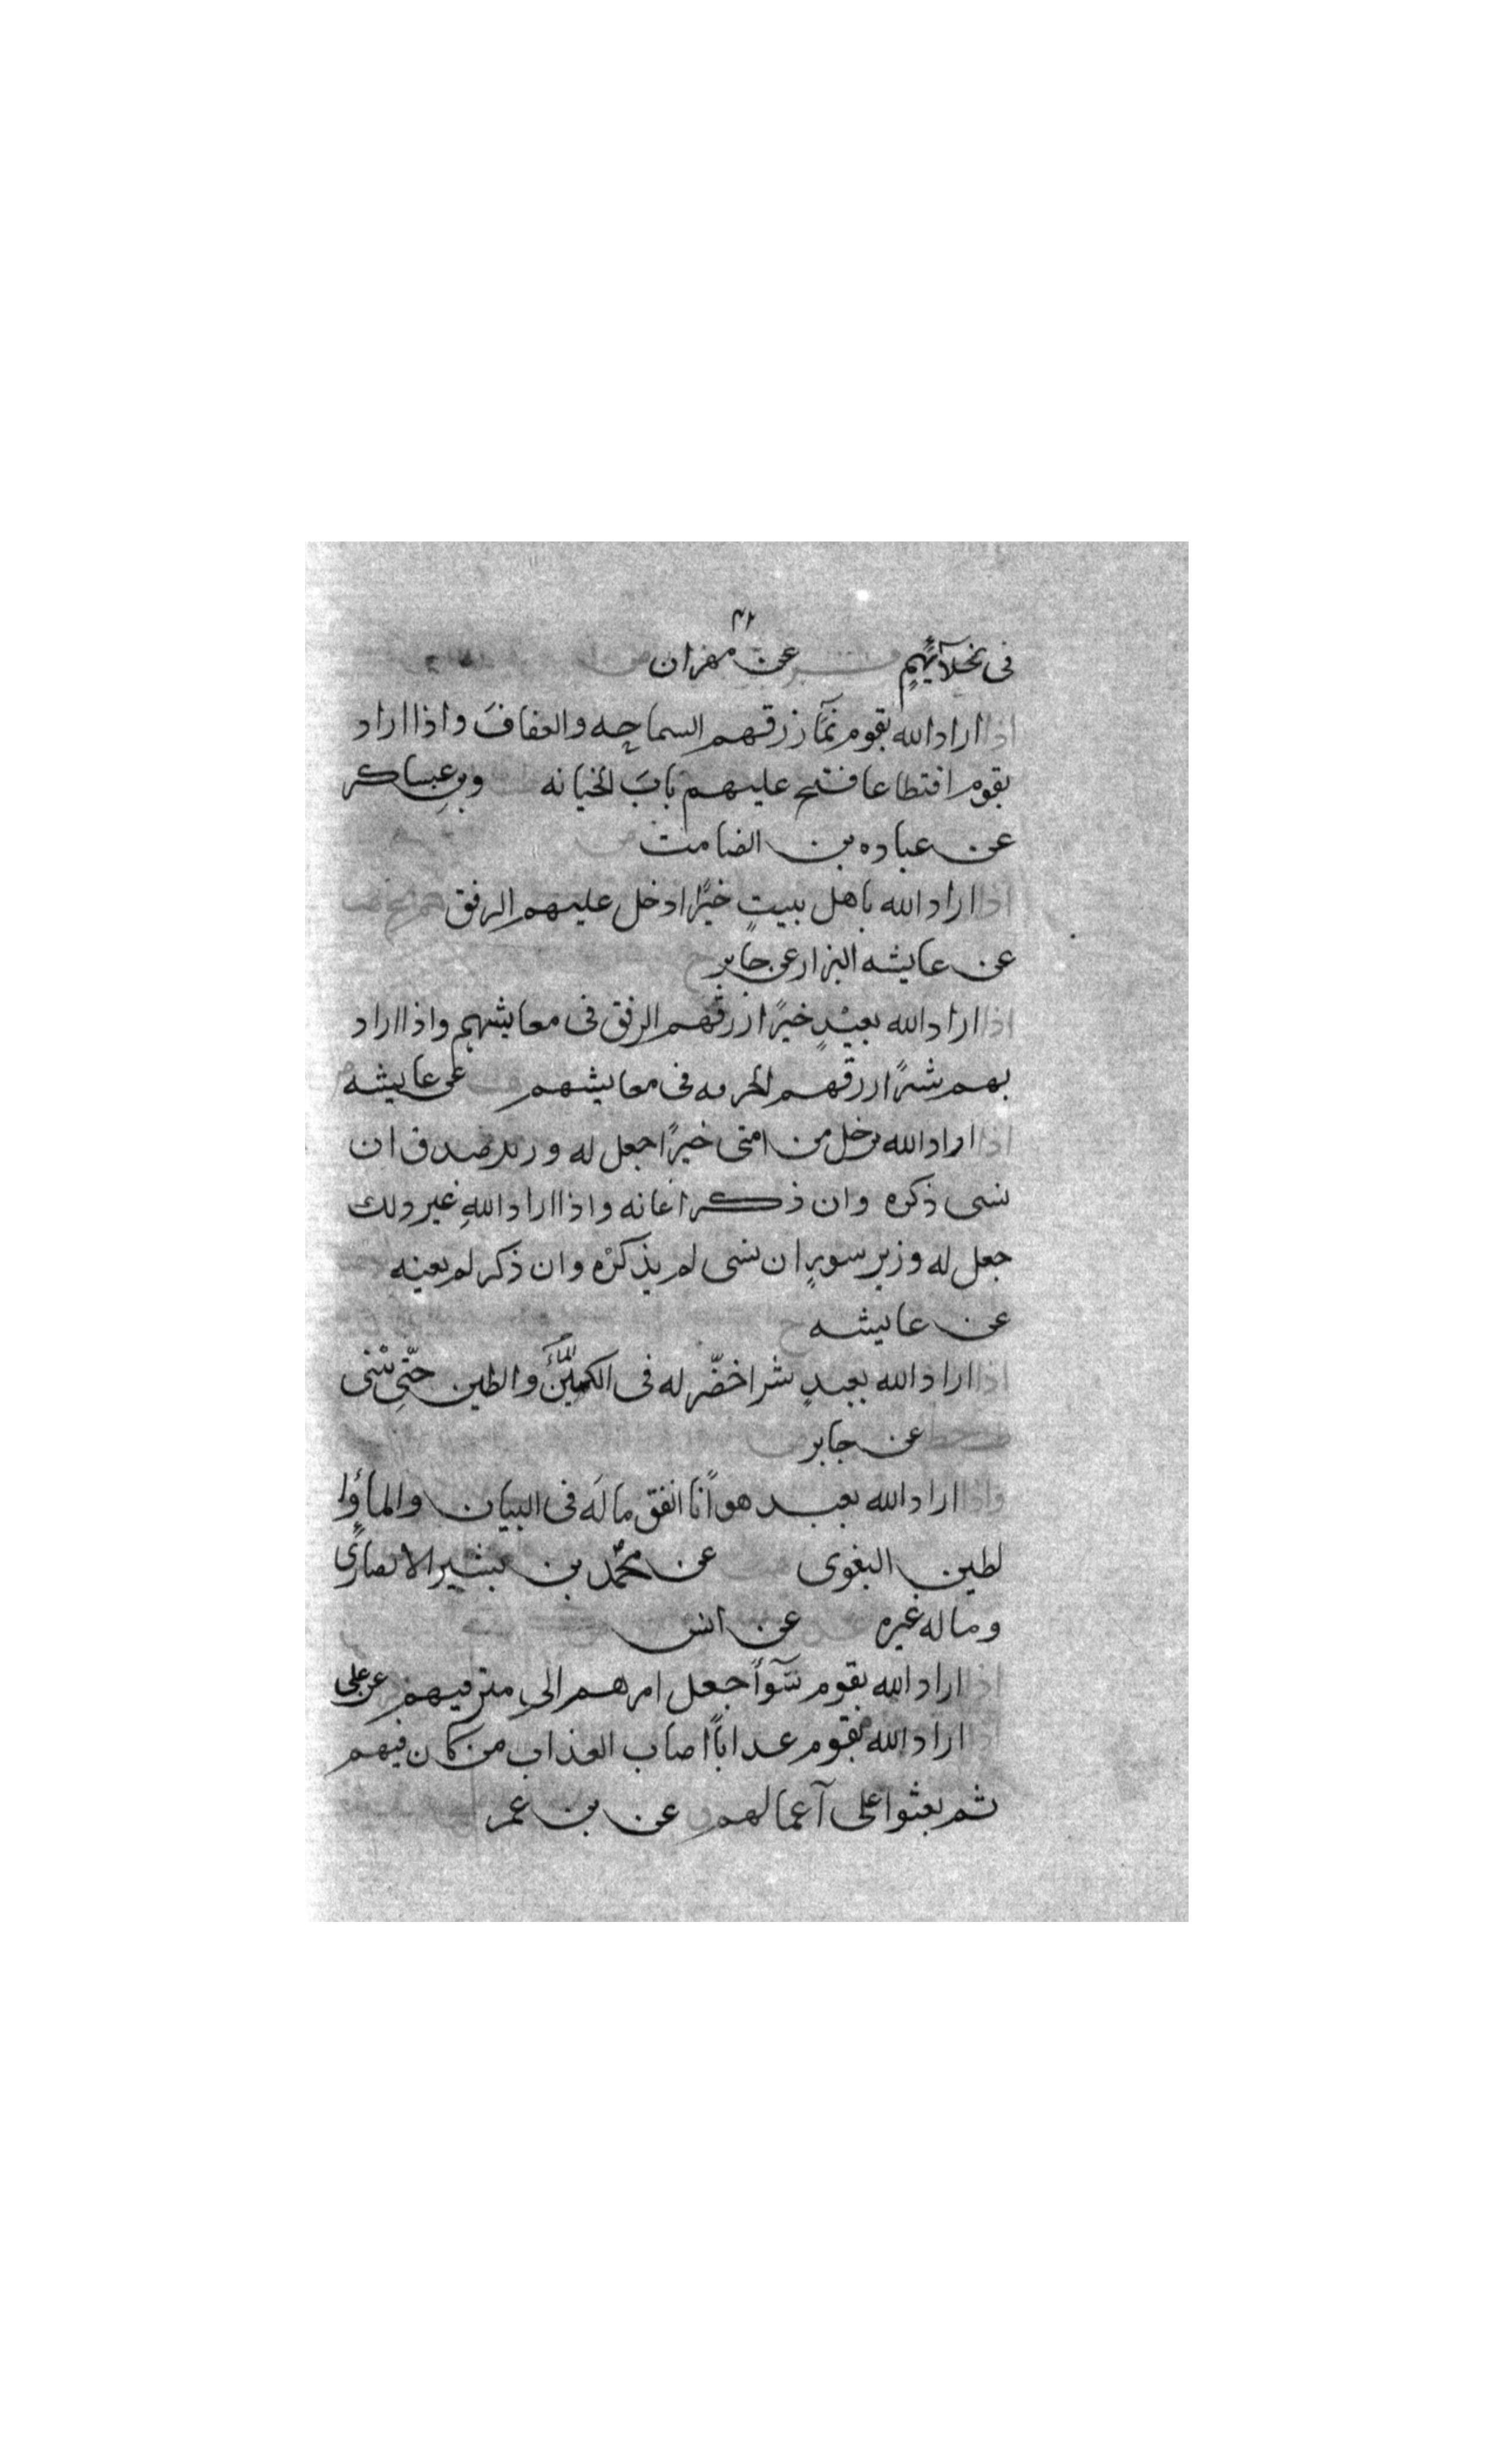 ٤٢
فى بخلآئهم فر عن مهران
اذا اراد الله بقوم نمآ رزقهم السماحه والعفاف واذا اراد
بقوم اقتطاعا فتح عليهم باب الخيانه وبن عساكر
عن عباده بن الصامت
اذا اراد الله باهل بيت خيرًا ادخل عليهم الرفق
عن عايشه البزار عن جابر
اذا اراد الله بعبيدٍ خيرًا ارزقهم الرفق فى معايشهم واذا اراد
بهم شرًا ارزقهم الخرمه فى معايشهم عن عايشه
اذا اراد الله برجل من امتى خيرًا جعل له وزير صدق ان
نسى ذكره وان ذكر اعانه واذا اراد الله غير ذلك
جعل له وزير سوءٍ ان نسى لم يذكرْه وان ذكر لم يعينه
عن عايشه
اذا اراد الله بعبدٍ شرا خضّر له فى والطين حتّى يبْنى
عن جابر
واذا اراد الله بعبد هوانًا انفق مالَه فى البيان والماؤا
لطين البغوى عن محمّد بن بشير الانصارى
وماله غيره عن انس
اذا اراد الله بقوم سوٓأً جعل امرهم الى مترفيهم عن على
اذا اراد الله بقوم عذابًا اصاب العذاب من كان فيهم
ثم بعثوا على آعمالهم عن بن عمر